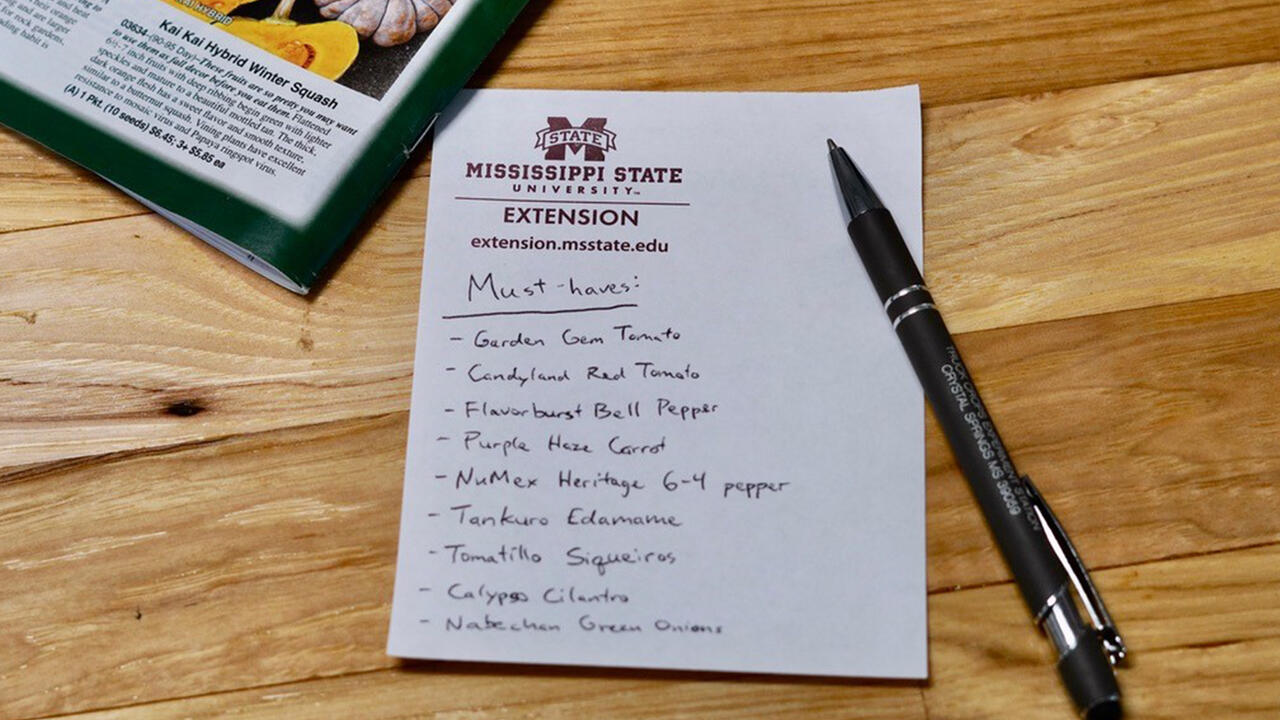 KAI HYBRID
Kai Kai Hybrid Winter Squash
03634-(90-95 Day)-These fruits are so pretty you may want
to use them as fall decor before you eat them. Flattened
6½-7 inch fruits with deep ribbing begin green with lighter
speckles and mature to a beautiful mottled tan. The thick,
dark orange flesh has a sweet flavor and smooth texture,
similar to a butternut squash. Vining plants have excellent
resistance to mosaic virus and Papaya ringspot virus.
(A) 1 Pkt. (10 seeds) $6.45; 3+ $5.85 ea
STATE
MISSISSIPPI STATE
UNIVERSITY™
EXTENSION
extension.msstate.edu
Must-haves:
- Garden Gem Tomato
- Candyland Red Tomato
- Flavorburst Bell Pepper
- Purple Haze Carrot
- NuMex Heritage 6-4 pepper
- Tankuro Edamame
- Tomatillo Siqueiros
- Calypso Cilantro
- Nabechan Green Onions
TRUCK CROPS EXPERIMENT STATION
CRYSTAL SPRINGS MS 39059